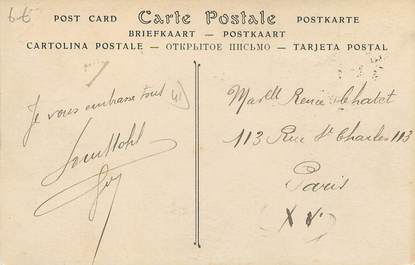 6€
POST CARD Carte Postale POSTKARTE
BRIEFKAART — POSTKAART
CARTOLINA POSTALE — ОТКРЫТОЕ ПИСЬМО — TARJETA POSTAL
Je vous embrasse tous
41
Renée Chatet
113 Rue St Charles 113
Paris
XV